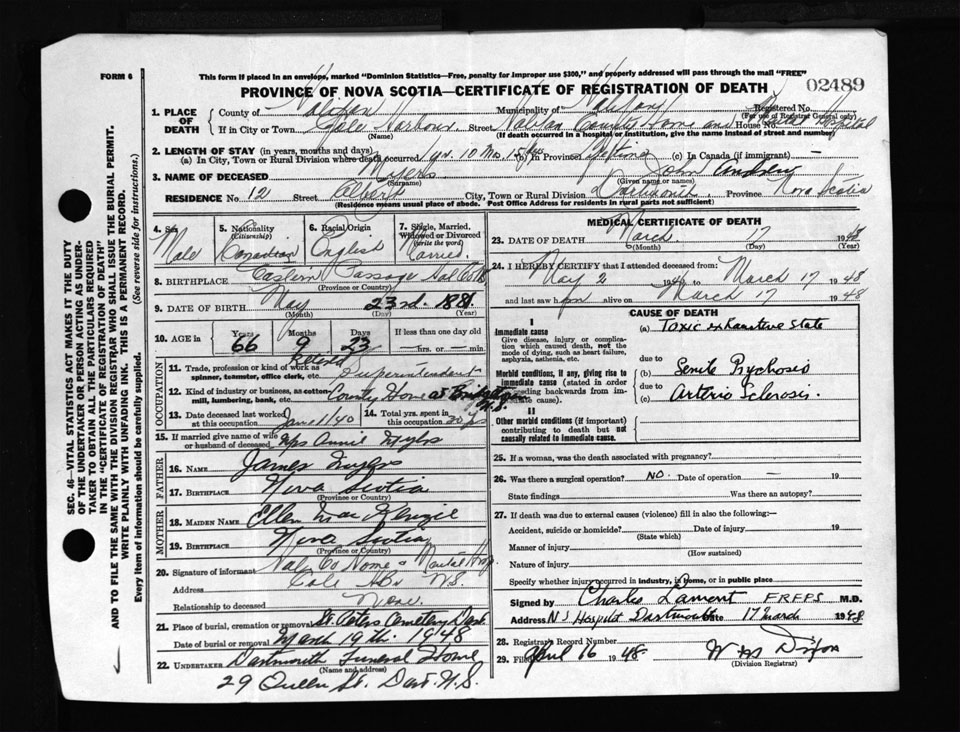 FORM 6
This form if placed in an envelope, marked "Dominion Statistics—Free, penalty for improper use $300," and properly addressed will pass through the mail "FREE"
PROVINCE OF NOVA SCOTIA—CERTIFICATE OF REGISTRATION OF DEATH
02489
1. PLACE OF DEATH County of Halifax Municipality of Halifax Registered No. (For use of Registrar General only)
If in City or Town Cole Harbour Street Halifax County Home and Mental Hospital House No.
(Name) (If death occurred in a hospital or institution, give the name instead of street and number)
2. LENGTH OF STAY (in years, months and days)
(a) In City, Town or Rural Division where death occurred yr. 10 Mos 15 days (b) In Province Lifetime (c) In Canada (if immigrant) —
3. NAME OF DECEASED Myers John
(Surname) (Given name or names)
RESIDENCE No. 12 Street City, Town or Rural Division Dartmouth Province Nova Scotia
(Residence means usual place of abode. Post Office Address for residents in rural parts not sufficient)
4. Sex Male
5. Nationality (Citizenship) Canadian
6. Racial Origin English
7. Single, Married, Widowed or Divorced (write the word) Married
8. BIRTHPLACE Eastern Passage Hal Co NS
(Province or Country)
9. DATE OF BIRTH May 23rd. 1881
(Month) (Day) (Year)
10. AGE in Years 66 Months 9 Days 23 If less than one day old — hrs. or — min.
OCCUPATION
11. Trade, profession or kind of work as spinner, teamster, office clerk, etc. Retired Superintendent
12. Kind of industry or business, as cotton mill, lumbering, bank, etc. County Home at Bridgetown N.S.
13. Date deceased last worked at this occupation June 1140
14. Total yrs. spent in this occupation 30 yrs
15. If married give name of wife or husband of deceased Mrs Annie Myers
FATHER
16. NAME James Myers
17. BIRTHPLACE Nova Scotia
(Province or Country)
MOTHER
18. MAIDEN NAME Ellen MacKenzie
19. BIRTHPLACE Nova Scotia
(Province or Country)
20. Signature of informant Hal Co Home & Mental Hosp.
Address Cole Hbr N.S.
Relationship to deceased None.
21. Place of burial, cremation or removal St Peters Cemetery Dart.
Date of burial or removal March 19th. 1948
22. UNDERTAKER Dartmouth Funeral Home
(Name and address)
29 Queen St. Dart. N.S.
MEDICAL CERTIFICATE OF DEATH
23. DATE OF DEATH March 17 1948
(Month) (Day) (Year)
24. I HEREBY CERTIFY that I attended deceased from May 2 194 to March 17 1948
and last saw him alive on March 17 1948
CAUSE OF DEATH
I
Immediate cause
Give disease, injury or complication which caused death, not the mode of dying, such as heart failure, asphyxia, asthenia, etc.
(a) Toxic exhaustive state
due to
Morbid conditions, if any, giving rise to immediate cause (stated in order proceeding backwards from immediate cause).
(b) Senile Psychosis
due to
(c) Arterio Sclerosis.
II
Other morbid conditions (if important) contributing to death but not causally related to immediate cause.
25. If a woman, was the death associated with pregnancy?
26. Was there a surgical operation? NO. Date of operation — 19
State findings Was there an autopsy?
27. If death was due to external causes (violence) fill in also the following:—
Accident, suicide or homicide? Date of injury 19
(State which)
Manner of injury
(How sustained)
Nature of injury
Specify whether injury occurred in industry, in home, or in public place
Signed by Charles Lamont F.R.F.P.S M.D.
Address N S Hospital Dartmouth Date 17 March 1948
28. Registrar's Record Number
29. Filed April 16 1948 Wm Dixon
(Division Registrar)
SEC. 46—VITAL STATISTICS ACT MAKES IT THE DUTY
OF THE UNDERTAKER OR PERSON ACTING AS UNDER-
TAKER TO OBTAIN ALL THE PARTICULARS REQUIRED
IN THE "CERTIFICATE OF REGISTRATION OF DEATH"
AND TO FILE THE SAME WITH THE DIVISION REGISTRAR WHO SHALL ISSUE THE BURIAL PERMIT.
WRITE PLAINLY WITH UNFADING INK. THIS IS A PERMANENT RECORD.
Every item of information should be carefully supplied. (See reverse side for instructions.)